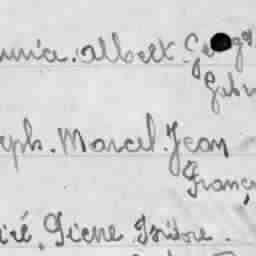 albert
Gabr
eph. Marcel. Jean
Franç
iré. Pierre Isidore.